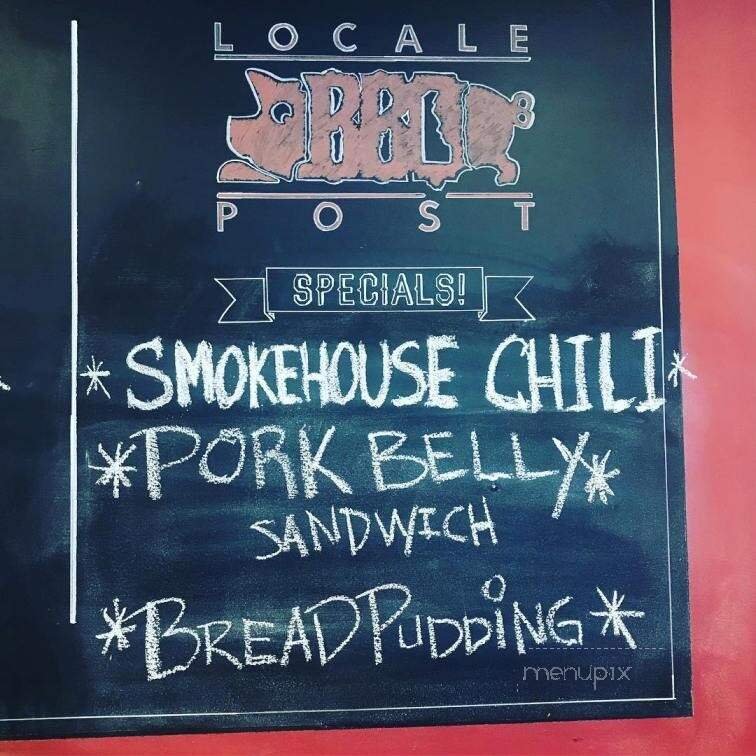 LOCALE
BBQ
POST
SPECIALS!
* SMOKEHOUSE CHILI *
* PORK BELLY *
SANDWICH
* BREAD PUDDING *
menupix